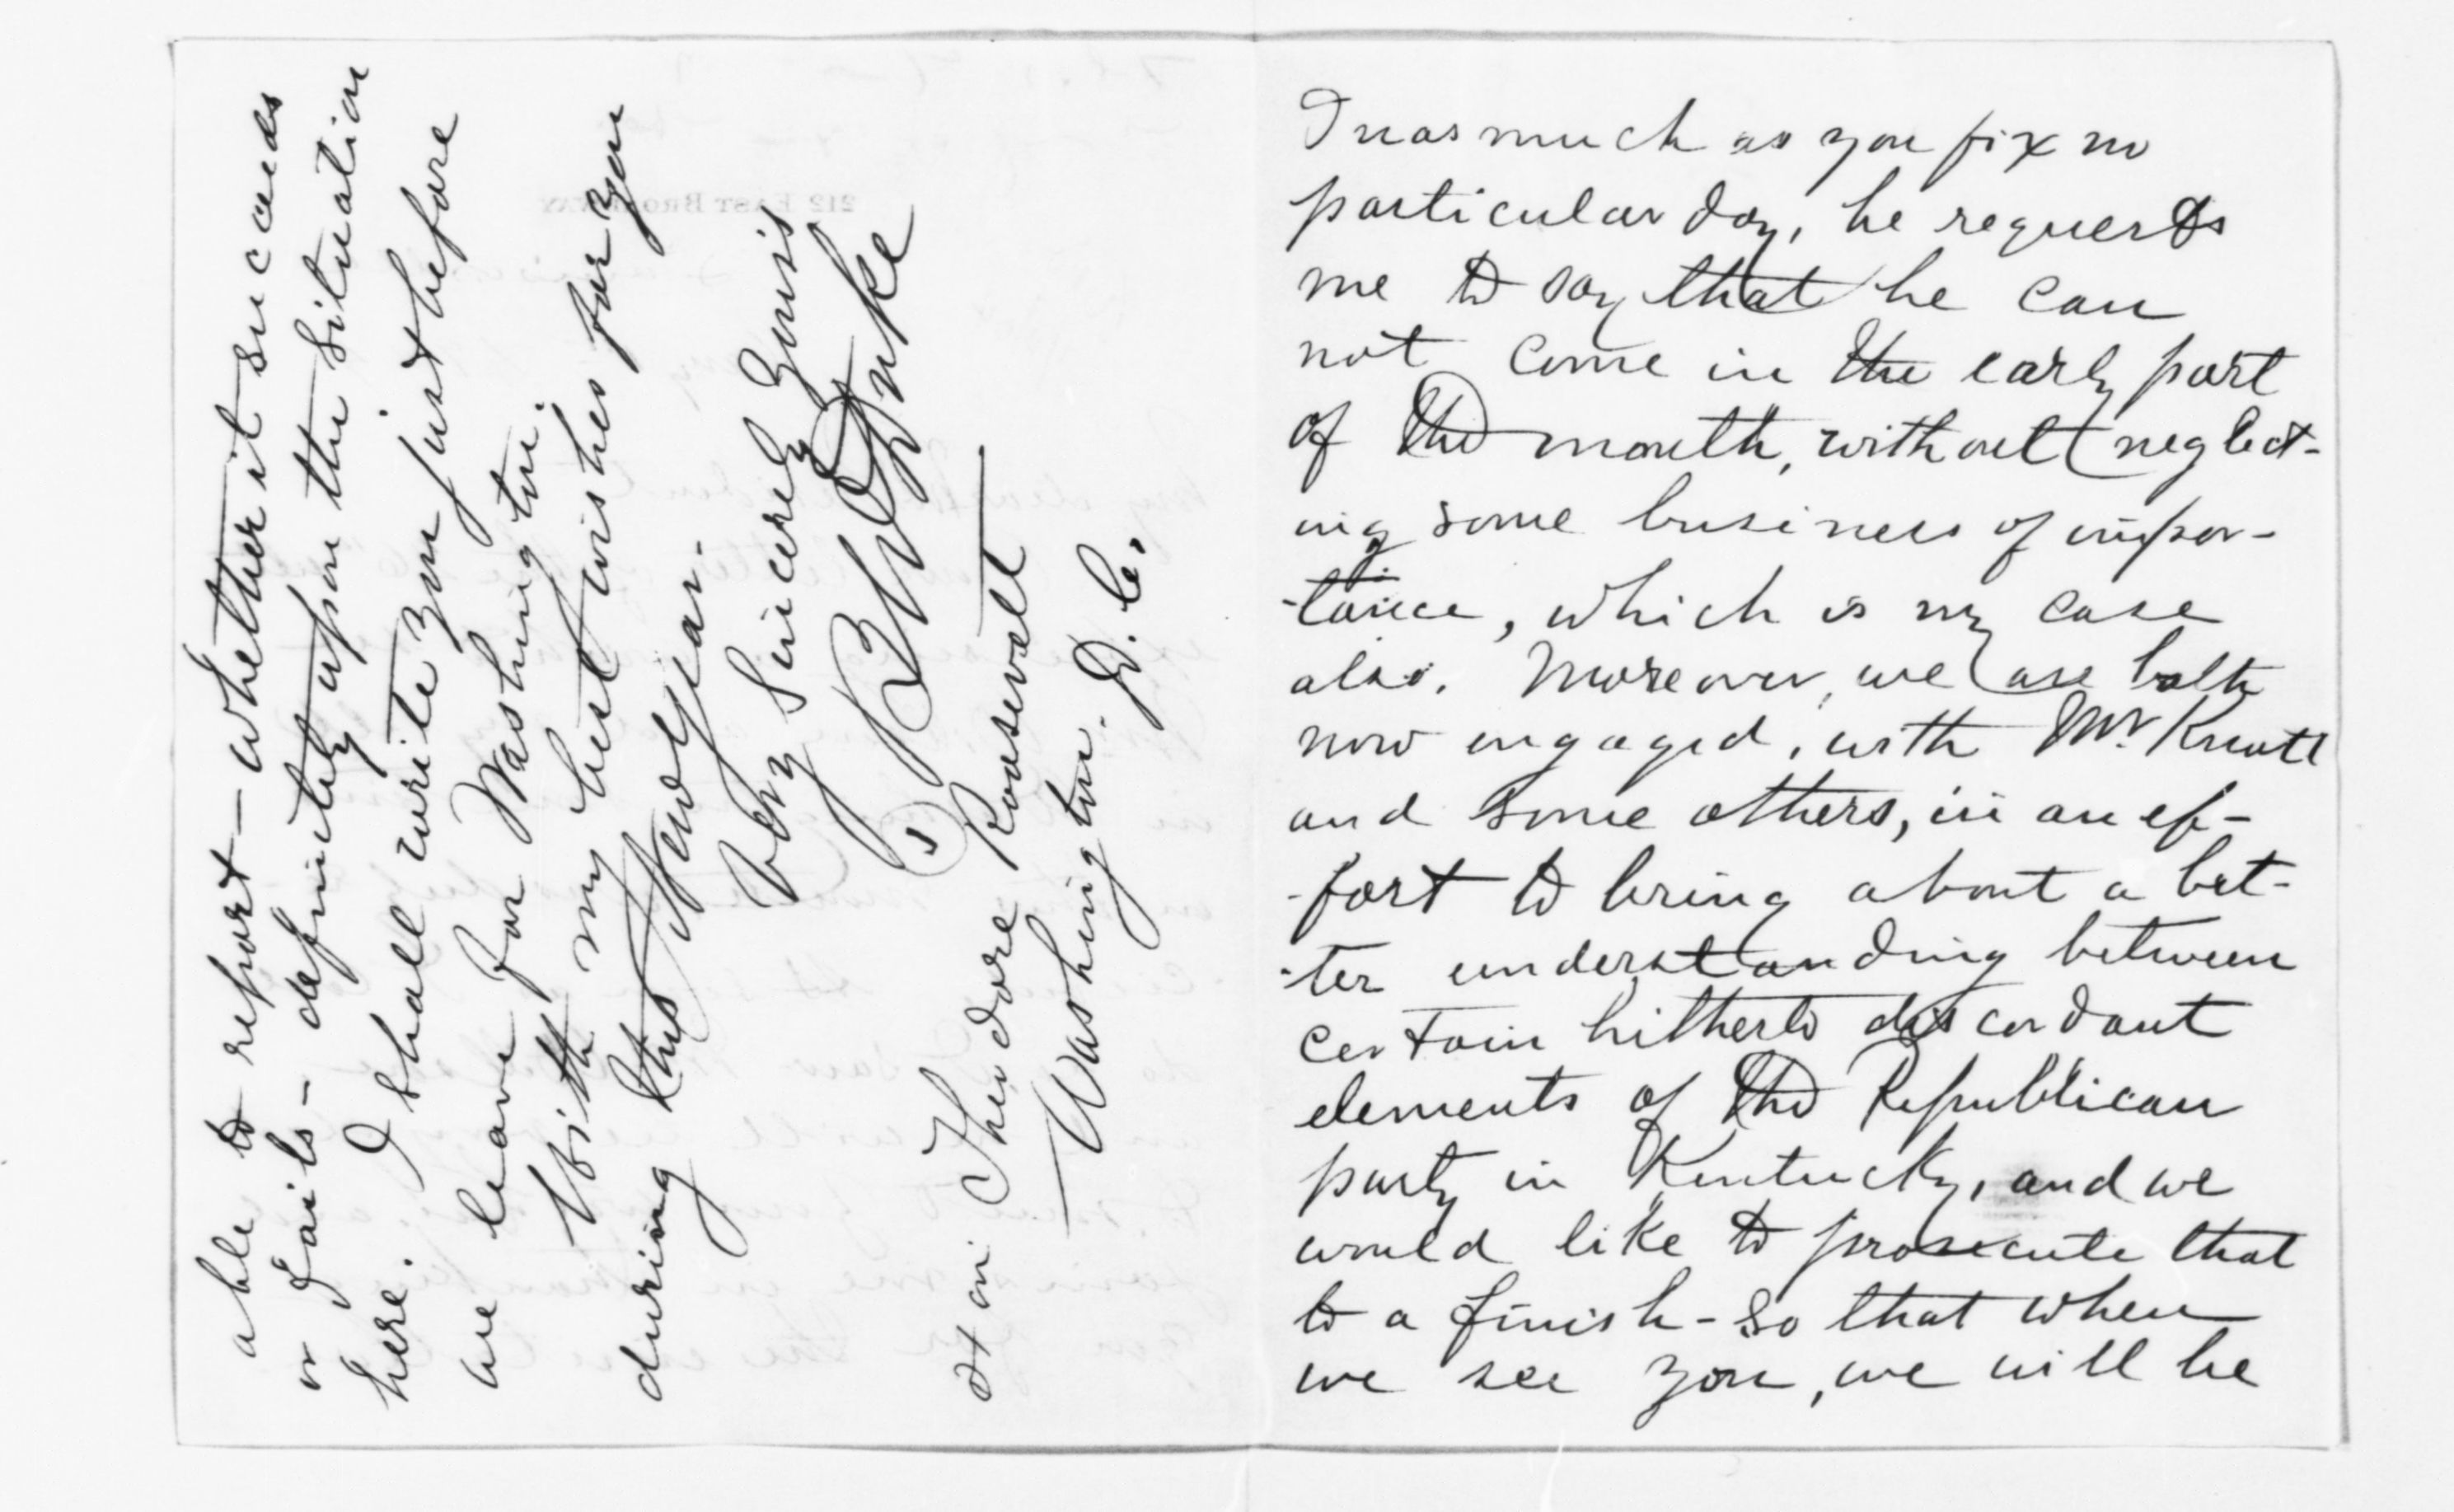 Inasmuch as you fix no
particular day, he requests
me to say that he can
not come in the early part
of the month, without neglect-
ing some business of impor-
-tance, which is my case
also. Moreover, we are both
now engaged, with Mr. Knott
and some others, in an ef-
-fort to bring about a bet-
-ter understanding between
certain hitherto discordant
elements of the Republican
party in Kentucky, and we
would like to prosecute that
to a finish - so that when
we see you, we will be
able to report - whether it succeeds
or fails - definitely upon the situation
here. I shall write you just before
we leave for Washington.
With my best wishes for you
during this New Year.
Very Sincerely Yours
Hon Theodore Roosevelt
Washington. D.C.
212 EAST BROADWAY